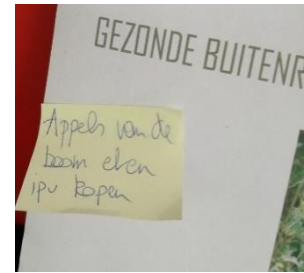 GEZONDE BUITENR
Appels van de
boom eten
ipv kopen